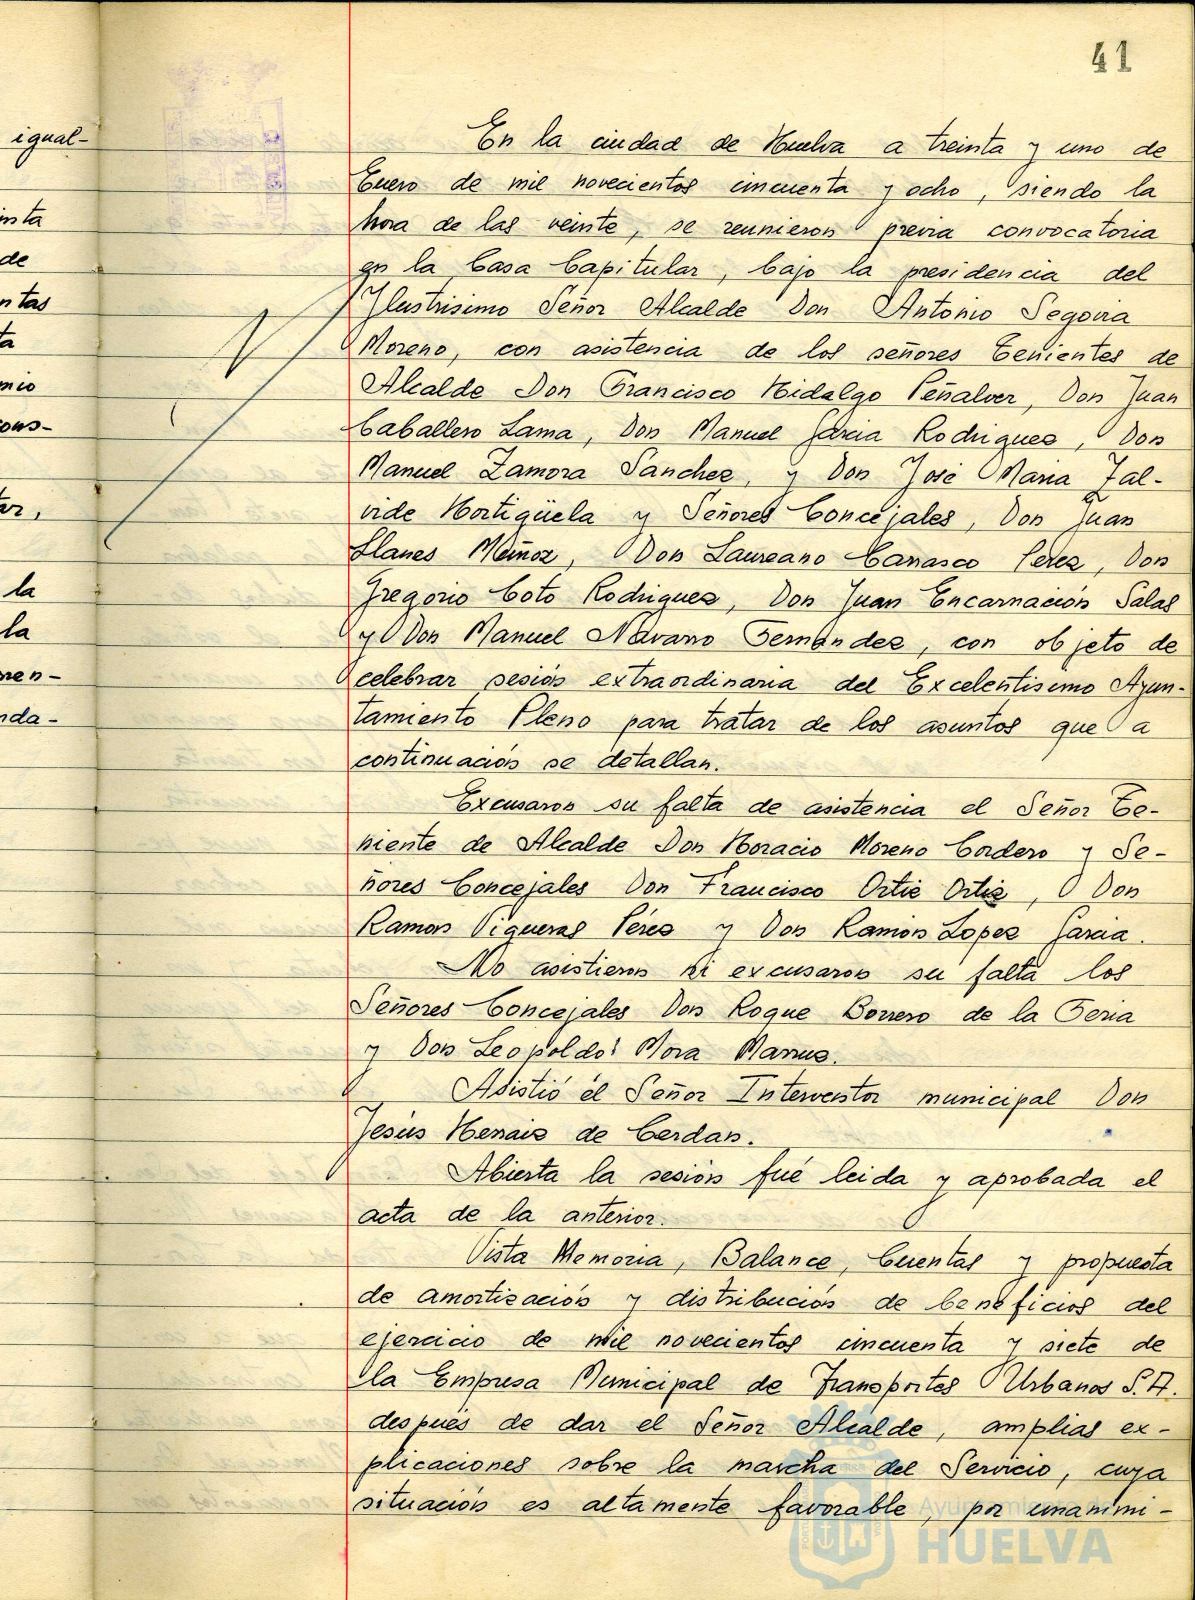 41
igual-
de
ntas
mio
cons-
la
la
men-
nda-
En la ciudad de Huelva a treinta y uno de
Enero de mil novecientos cincuenta y ocho, siendo la
hora de las veinte, se reunieron previa convocatoria
en la Casa Capitular, bajo la presidencia del
Ilustrisimo Señor Alcalde Don Antonio Segovia
Moreno, con asistencia de los señores Tenientes de
Alcalde Don Francisco Hidalgo Peñalver, Don Juan
Caballero Lama, Don Manuel Garcia Rodriguez, Don
Manuel Zamora Sanchez, y Don José Maria Zal-
vide Hortigüela y Señores Concejales, Don Juan
Llanes Muñoz, Don Laureano Carrasco Perez, Don
Gregorio Coto Rodriguez, Don Juan Encarnación Salas
y Don Manuel Navarro Fernandez, con objeto de
celebrar sesión extraordinaria del Excelentisimo Ayun-
tamiento Pleno para tratar de los asuntos que a
continuación se detallan.
Excusaron su falta de asistencia el Señor Te-
niente de Alcalde Don Horacio Moreno Cordero y Se-
ñores Concejales Don Francisco Ortiz Ortiz, Don
Ramon Vigueras Pérez y Don Ramón Lopez Garcia.
No asistieron ni excusaron su falta los
Señores Concejales Don Roque Borrero de la Feria
y Don Leopoldo Mora
Asistió el Señor Interventor municipal Don
Jesús Henaiz de Cerdan.
Abierta la sesión fué leida y aprobada el
acta de la anterior.
Vista Memoria, Balance, Cuentas y propuesta
de amortización y distribución de beneficios del
ejercicio de mil novecientos cincuenta y siete de
la Empresa Municipal de Transportes Urbanos S.A.
después de dar el Señor Alcalde, amplias ex-
plicaciones sobre la marcha del Servicio, cuya
situación es altamente favorable, por unanimi-
Ayuntamiento de
HUELVA